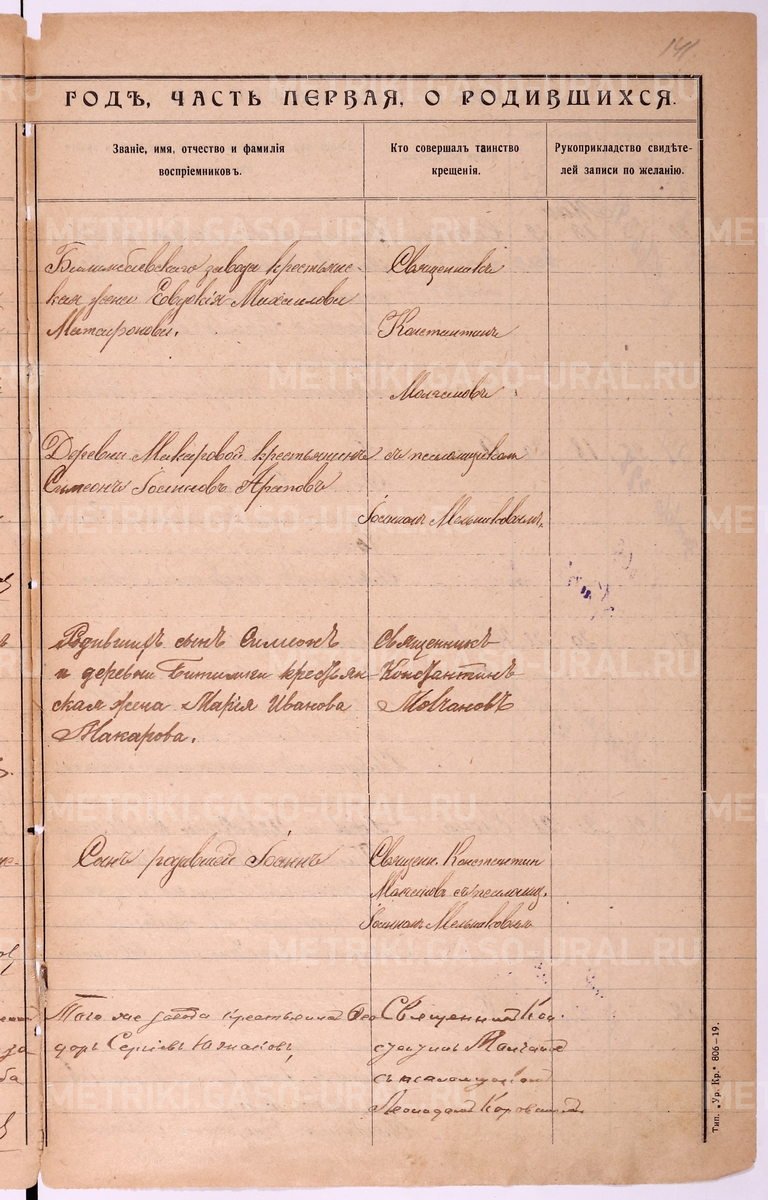 141
ГОДЪ, ЧАСТЬ ПЕРВАЯ, О РОДИВШИХСЯ.
Званіе, имя, отчество и фамилія
воспріемниковъ.
Кто совершалъ таинство
крещенія.
Рукоприкладство свидѣте-
лей записи по желанію.
Билимбаевскаго завода крестьянс-
кая жена Евдокія Михаилова
Матафонова.
Священникъ
Константинъ
Молчановъ
Деревни Макаровой крестьянинъ
Симеонъ Іоанновъ Араповъ
съ псаломщикомъ
Іоанномъ Мельниковымъ.
Родившихъ сынъ Симеонъ
и деревни Битимки крестьян-
ская жена Марія Иванова
Макарова.
Священникъ
Константинъ
Молчановъ
Сынъ родившей Іоаннъ
Священ. Константин
Молчанов съ псаломщ.
Іоанном Мельниковым
Того же завода крестьянин Фео
доръ Сергіевъ
Священник Кон
стантин Молчанов
съ псаломщиком
Леонидом
Тип. „Ур. Кр." 806—19.
METRIKI.GASO-URAL.RU